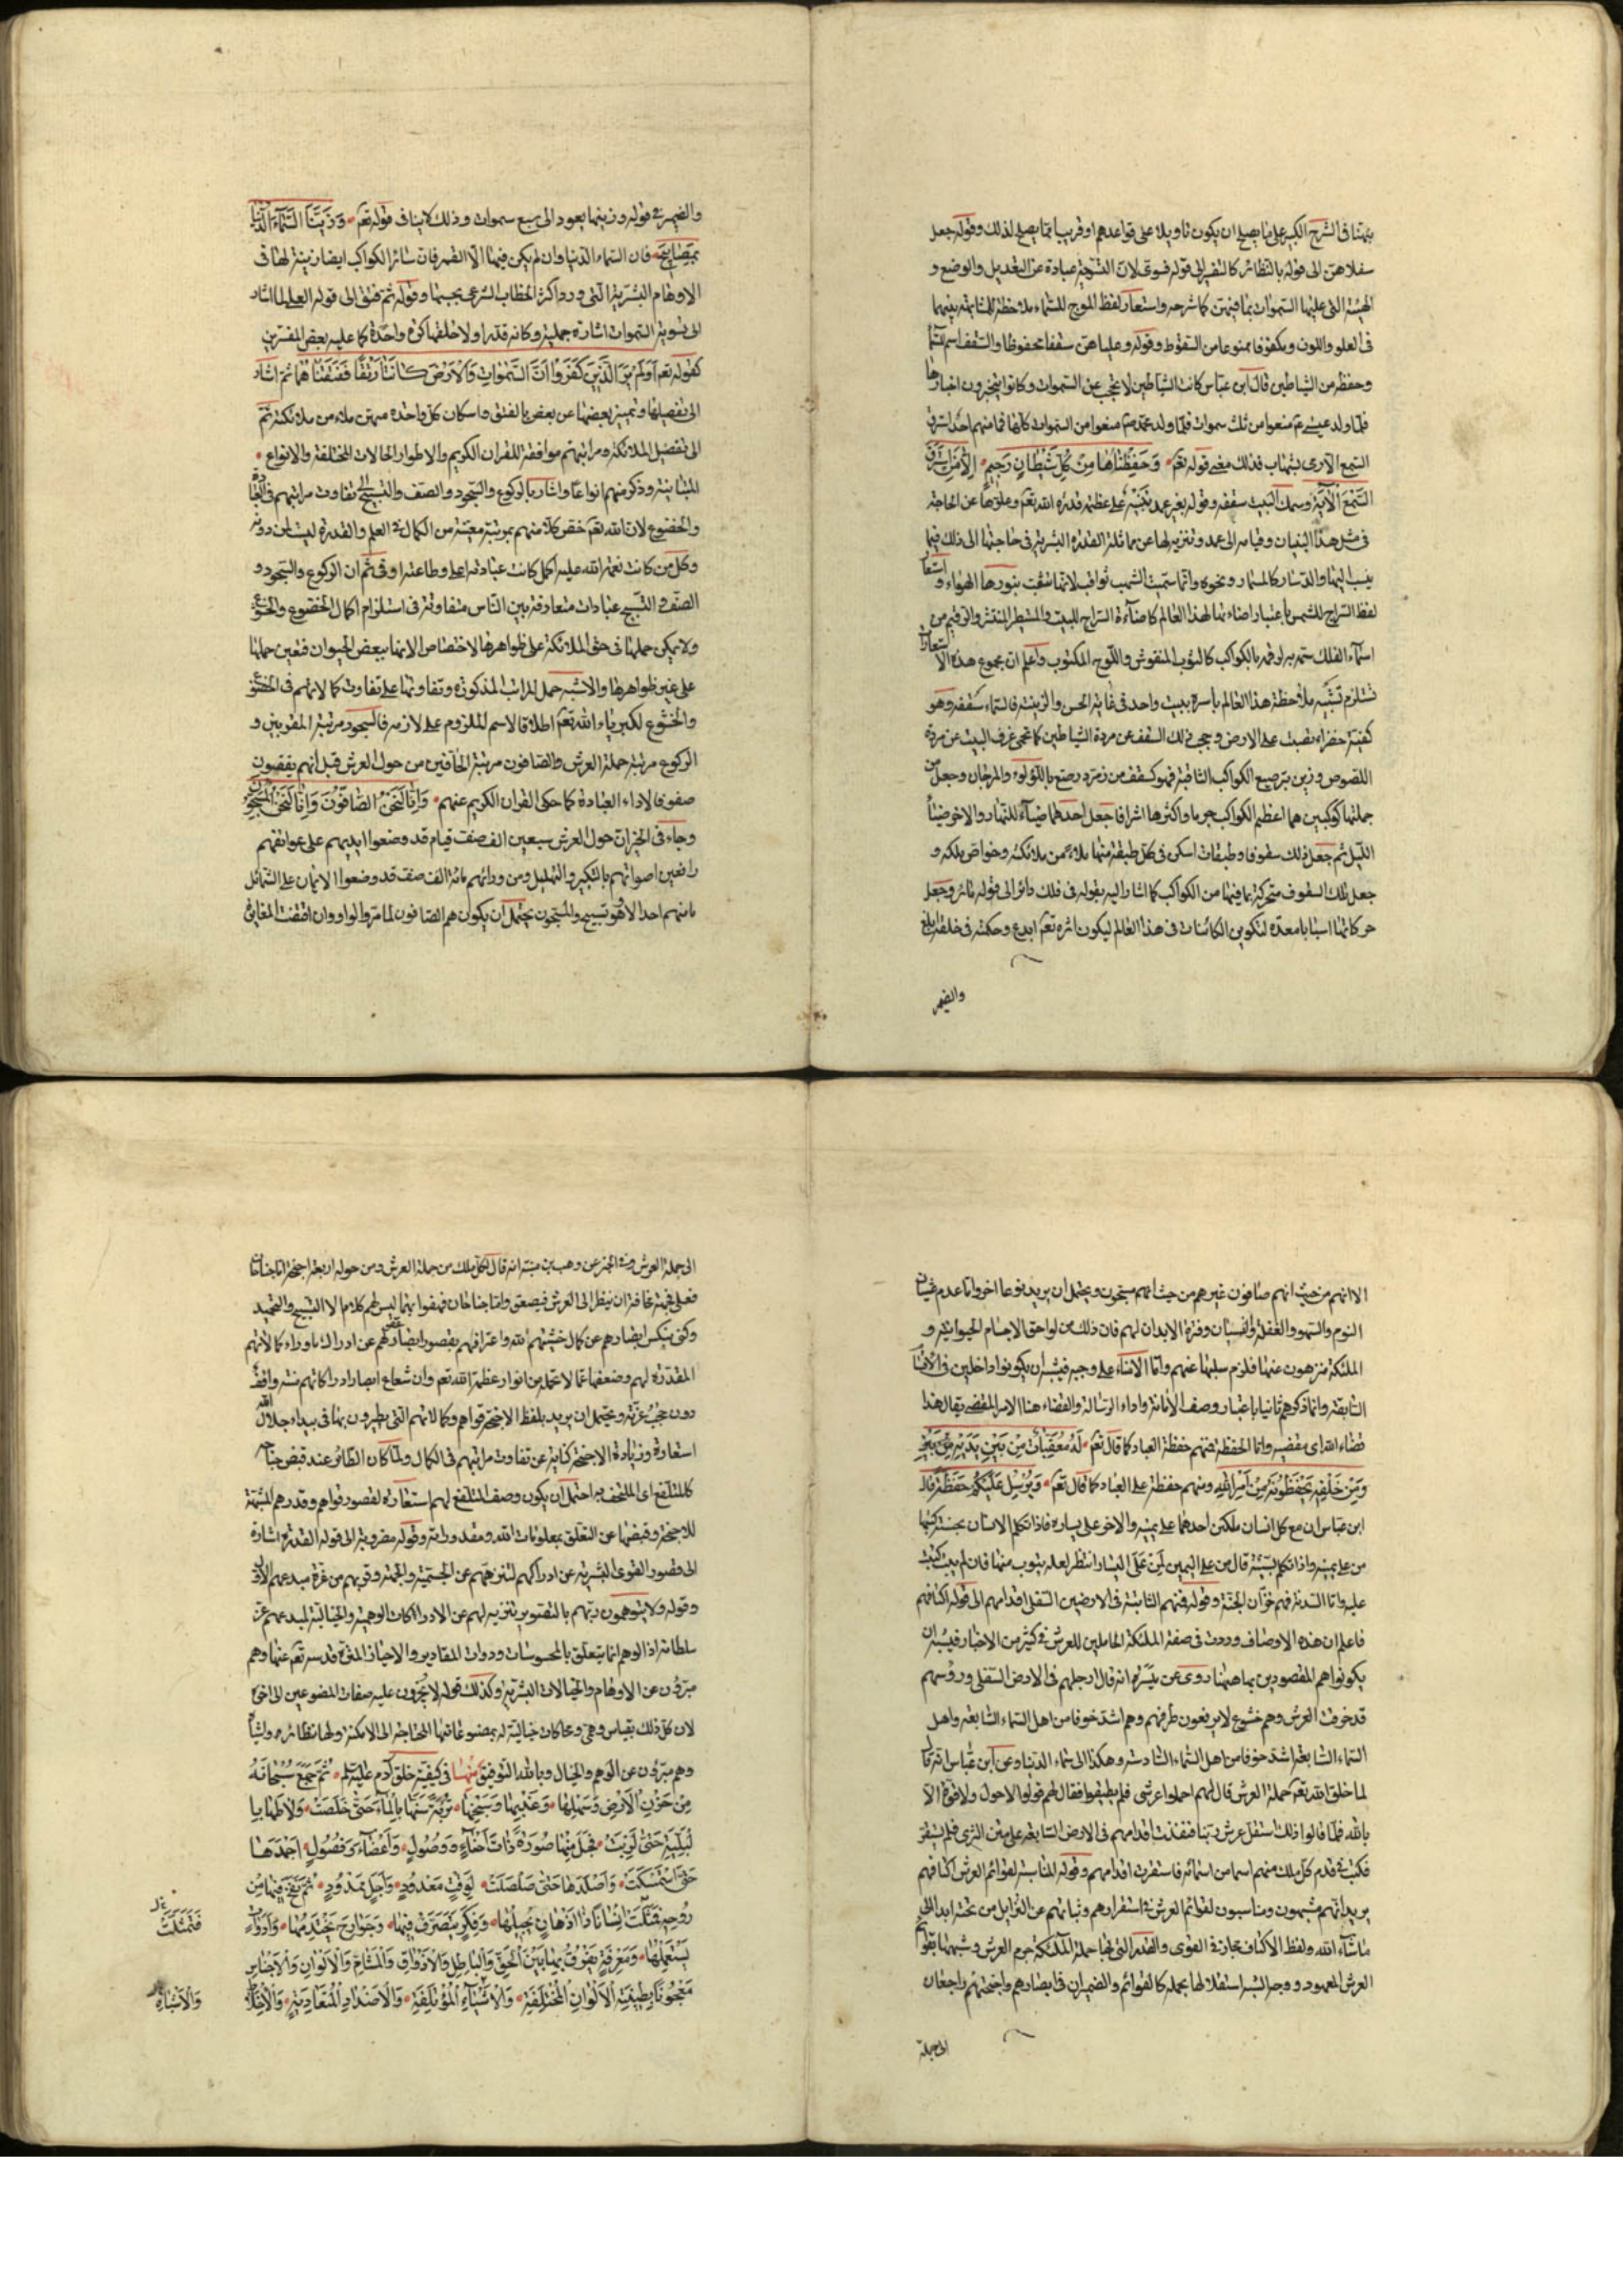 بيّنا فى الشرح الكبير على ما يصلح ان يكون تاويلا على قواعدهم او قريبا مما يصلح لذلك وقوله جعل
سفلاهن الى قوله بالنظائر كالتفسير لقوله فسوى لان التسوية عبادة عن التعديل والوضع و
الهيئة التى عليها السموات بما فيهن كما شرحه واستعار لفظ الموج للسماء ملاحظة للمشابهة بينهما
فى العلو واللون ومكفوفا ممنوعا من السقوط وقوله وعلياهن سقفا محفوظا والسقف اسم للسماء
وحفظه من الشياطين قال ابن عباس كانت الشياطين لا تحجب عن السموات وكانوا يتخبرون اخبارها
فلما ولد عيسى ع منعوا من ثلث سموات فلما ولد محمد ص منعوا من السموات كلها فما منهم احد استرق
السمع الا رمى بشهاب فذلك معنى قوله تعم وَحَفِظْنَاهَا مِنْ كُلِّ شَيْطَانٍ رَجِيمٍ اِلَّا مَنِ اسْتَرَقَ
السَّمْعَ الآية وسمك البيت سقفه وقوله بغير عمد تنبيه على عظمة قدرة الله تعم وعلوها عن الحاجة
فى مثل هذا البنيان وقيامه الى عمد وتنزيه لها عن مماثلة القدرة البشرية فى حاجتها الى ذلك فيما
ينسب اليها والدسار كالمسمار ونحوه وانما سميت الشهب ثواقب لانها تثقب بنورها الهواء و استعار
لفظ السراج للشمس باعتبار اضاءتها لهذا العالم كاضاءة السراج للبيت والمستطير المنتشر والرقيم من
اسماء الفلك سمى به لرقمه بالكواكب كالثوب المنقوش واللوح المكتوب واعلم ان مجموع هذه الاستعارات
تستلزم تشبيه ملاحظة هذا العالم باسره ببيت واحد فى غاية الحسن والزينة فالسماء كسقفه وهو
كقبة خضراء نصبت على الارض وحجب ذلك السقف عن مردة الشياطين كما تحمى غرف البيت عن مردة
اللصوص وزين بترصيع الكواكب الثاقبة فهو كسقف من زمرد رصع باللؤلؤ والمرجان وجعل من
جملتها كوكبين هما اعظم الكواكب جرما واكثرها اشراقا جعل احدهما ضياء للنهار والاخر ضياء
الليل ثم جعل ذلك سقوفا وطبقات اسكن فى كل طبقة منها ملاء من ملائكته وخواص ملكه و
جعل تلك السقوف متحركة بما فيها من الكواكب كما اشار اليه بقوله فى فلك دائر الى قوله مائر وجعل
حركاتها اسبابا معدة لتكوين الكائنات فى هذا العالم ليكون اثره تعم ابدع وحكمته فى خلقه ابلغ
والضمير
والضمير فى قوله وزينها يعود الى سبع سموات وذلك لا ينافى قوله تعم وَزَيَّنَّا السَّمَاءَ الدُّنْيَا
بِمَصَابِيحَ فان السماء الدنيا وان لم يكن فيها الا القمر فان سائر الكواكب ايضا زينة لها فى
الاوهام البشرية التى ورد اكثر الخطاب الشرعى بحسبها وقوله ثم فتق الى قوله العلى لما اشار
الى تسوية السموات اشارة جملية وكانه قدر اولا خلقها كرة واحدة كما عليه بعض المفسرين
كقوله تعم اَوَلَمْ يَرَ الَّذِينَ كَفَرُوا اَنَّ السَّمٰوَاتِ وَالْاَرْضَ كَانَتَا رَتْقًا فَفَتَقْنَاهُمَا ثم اشار
الى تفصيلها وتمييز بعضها عن بعض بالفتق واسكان كل واحدة منهن ملاء من ملائكته ثم
الى تفصيل الملائكة ومراتبهم موافقة للقران الكريم والاطوار الحالات المختلفة والانواع
المتباينة وذكر منهم انواعا واشار بالركوع والسجود والصف والتسبيح الى تفاوت مراتبهم فى العبادة
والخضوع لان الله تعم خص كلا منهم بمرتبة معينة من الكمال فى العلم والقدرة ليست لمن دونه
وكل من كانت نعمة الله عليه اكمل كانت عبادته اعلى وطاعته اوفى ثم ان الركوع والسجود و
الصف و التسبيح عبادات متعارفة بين الناس متفاوتة فى استلزام اكمال الخضوع والخشوع
ولا يمكن حملها فى حق الملائكة على ظواهرها لاختصاص الانها ببعض الحيوان فتعين حملها
على غير ظواهرها والاشبه حمل المراتب المذكورة وتفاوتها على تفاوت كمالاتهم فى الخضوع
والخشوع لكبرياء الله تعم اطلاقا لاسم الملزوم على لازمه فالسجود مرتبة المقربين و
الركوع مرتبة حملة العرش والصافون مرتبة الحافين من حول العرش قيل انهم يقفون
صفوفا لاداء العبادة كما حكى القران الكريم عنهم وَاِنَّا لَنَحْنُ الصَّافُّونَ وَاِنَّا لَنَحْنُ الْمُسَبِّحُونَ
وجاء فى الخبر ان حول العرش سبعين الف صف قيام قد وضعوا ايديهم على عواتقهم
رافعين اصواتهم بالتكبير والتهليل ومن ورائهم مائة الف صف قد وضعوا الايمان على الشمائل
ما منهم احد الا وهو تسبيح والمسبحون يحتمل ان يكون هم الصافون لما مر والواو وان اقتضت المغايرة
الا انهم من حيث انهم صافون غيرهم من حيث انهم مسبحون ويحتمل ان يريد نوعا اخر واما عدم غشيان
النوم والسهو والغفلة والنسيان وفترة الابدان لهم فان ذلك من لواحق الاجسام الحيوانية و
الملئكة منزهون عنها فلزم سلبها عنهم واما الامناء على وحيه فيشبه ان يكونوا داخلين فى الاقسام
السابقة وانما ذكرهم ثانيا باعتبار وصف الامانة واداء الرسالة والقضاء هنا الامر المقضى يقال هذا
قضاء الله اى مقضيه واما الحفظة فمنهم حفظة العباد كما قال تعم لَهُ مُعَقِّبَاتٌ مِنْ بَيْنِ يَدَيْهِ
وَمِنْ خَلْفِهِ يَحْفَظُونَهُ مِنْ اَمْرِ اللهِ ومنهم حفظة على العباد كما قال تعم وَيُرْسِلُ عَلَيْكُمْ حَفَظَةً قال
ابن عباس ان مع كل انسان ملكين احدهما على يمينه والاخر على يساره فاذا تكلم الانسان بحسنة كتبها
من على يمينه واذا تكلم بسيئة قال من على اليمين لمن على اليسار انتظر لعله يتوب منها فان لم يتب كتبت
عليه واما السدنة فهم خزان الجنة وقوله فمنهم الثابتة فى الارضين السفلى اقدامهم الى قوله اكتافهم
فاعلم ان هذه الاوصاف وردت فى صفة الملئكة الحاملين للعرش فى كثير من الاخبار فيشبه ان
يكونوا هم المقصودين بما ههنا روى عن ميسرة انه قال ارجلهم فى الارض السفلى ورؤسهم
قد خرقت العرش وهم خشوع لا يرفعون طرفهم وهم اشد خوفا من اهل السماء السابعة واهل
السماء السابعة اشد خوفا من اهل السماء السادسة وهكذا الى سماء الدنيا وعن ابن عباس انه قال
لما خلق الله تعم حملة العرش قال لهم احملوا عرشى فلم يطيقوا فقال لهم قولوا لا حول ولا قوة الا
بالله فلما قالوا ذلك استقل عرش ربنا فنفذت اقدامهم فى الارض السابعة على متن الثرى فلم تستقر
فكتب فى قدم كل ملك منهم اسما من اسمائه فاستقرت اقدامهم وقوله المناسبة لقوائم العرش اكتافهم
يريد انهم مشبهون ومناسبون لقوائم العرش فى استقرارهم وثباتهم عن التزايل من تحته ابدا الى
ما شاء الله ولفظ الاكتاف مجاز فى القوى والقدر التى بها حملة الملئكة جرم العرش وشبهها بقوائم
العرش المعهود ووجه الشبه استقلالها بحمله كالقوائم والضميران فى ابصارهم واجنحتهم راجعان
الى حملة
الى حملة العرش وفى الخبر عن وهب بن منبه انه قال لكل ملك من حملة العرش ومن حوله اربعة اجنحة اما جناحان
فعلى وجهه مخافة ان ينظر الى العرش فيصعق واما جناحان فيهفوا بهما ليس لهم كلام الا التسبيح والتحميد
وكنى بنكس ابصارهم عن كمال خشيتهم لله واعترافهم بقصور ابصار عقولهم عن ادراك ما وراء كمالاتهم
المقدرة لهم وضعفها عما لا تحتمله من انوار عظمة الله تعم وان شعاع ابصار ادراكاتهم منته واقف
دون حجب عزته ويحتمل ان يريد بلفظ الاجنحة قواهم وكمالاتهم التى يطيرون بها فى بيداء جلال الله
استعارة وزيادة الاجنحة كناية عن تفاوت مراتبهم فى الكمال ولما كان الطائر عند قبض جناحه
كالمتلفع اى الملتحف به احتمل ان يكون وصف التلفع لهم استعارة لقصور قواهم وقدرهم المشبهة
للاجنحة وقبضها عن التعلق بمعلومات الله ومقدوراته وقوله مضروبة الى قوله القدرة اشارة
الى قصور القوى البشرية عن ادراكهم لتنزههم عن الجسمية والجهة وقربهم من عزة مبدعهم الاول
وقوله ولا يتوهمون ربهم بالتصوير تنزيه لهم عن الادراكات الوهمية والخيالية لمبدعهم عز
سلطانه اذ الوهم انما يتعلق بالمحسوسات وذوات المقادير والاحياز المنزه قدسه تعم عنها وهم
مبرؤن عن الاوهام والخيالات البشرية وكذلك قوله لا يجرون عليه صفات المصنوعين الى اخره
لان كل ذلك بقياس وهمى ومحاكات خيالية له بمصنوعاتها المحتاجة الى الامكنة ولها نظائر ولشا
وهم مبرؤن عن الوهم والخيال وبالله التوفيق منها فى كيفية خلق آدم عليه السلم ثُمَّ جَمَعَ سُبْحَانَهُ
مِنْ حَزْنِ الْاَرْضِ وَسَهْلِهَا وَعَذْبِهَا وَسَبَخِهَا تُرْبَةً سَنَّهَا بِالْمَاءِ حَتّٰى خَلَصَتْ وَلَاطَهَا بِا
لْبَلَّةِ حَتّٰى لَزَبَتْ فَجَبَلَ مِنْهَا صُورَةً ذَاتَ اَحْنَاءٍ وَوُصُولٍ وَاَعْضَاءٍ وَفُصُولٍ اَجْمَدَهَا
حَتّٰى اسْتَمْسَكَتْ وَاَصْلَدَهَا حَتّٰى صَلْصَلَتْ لِوَقْتٍ مَعْدُودٍ وَاَجَلٍ مَمْدُودٍ ثُمَّ نَفَخَ فِيهَا مِنْ
رُوحِهِ فَمَثُلَتْ اِنْسَانًا ذَا اَذْهَانٍ يُجِيلُهَا وَفِكَرٍ يَتَصَرَّفُ فِيهَا وَجَوَارِحَ يَخْتَدِمُهَا وَاَدَوَاتٍ
فَتَمَثَّلَتْ
يَسْتَعْمِلُهَا وَمَعْرِفَةٍ يَفْرُقُ بِهَا بَيْنَ الْحَقِّ وَالْبَاطِلِ وَالْاَذْوَاقِ وَالْمَشَامِّ وَالْاَلْوَانِ وَالْاَجْنَاسِ
مَعْجُونًا بِطِينَةِ الْاَلْوَانِ الْمُخْتَلِفَةِ وَالْاَشْيَاءِ الْمُؤْتَلِفَةِ وَالْاَضْدَادِ الْمُتَعَادِيَةِ وَالْاَخْلَاطِ
وَالْاَشْبَاهِ